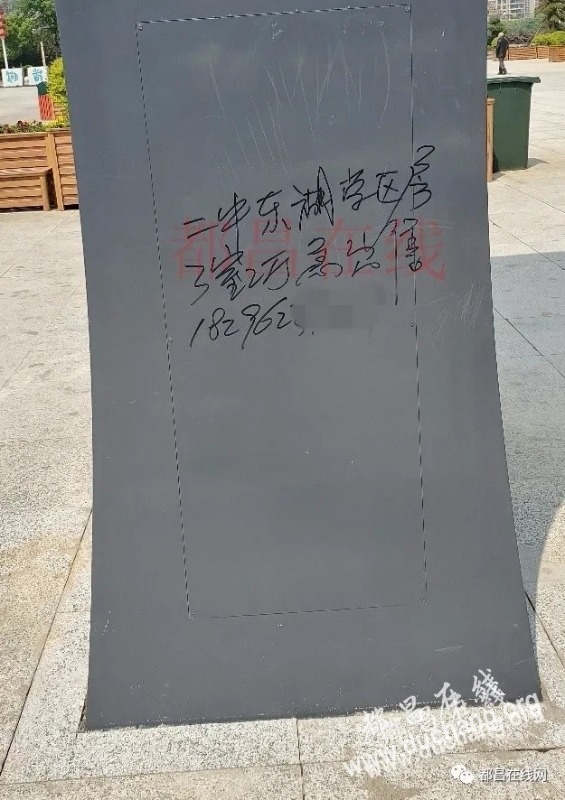 二中东湖学区房
都昌在线
3室2厅急出售
182962
都昌在线
www.duchang.org
都昌在线网